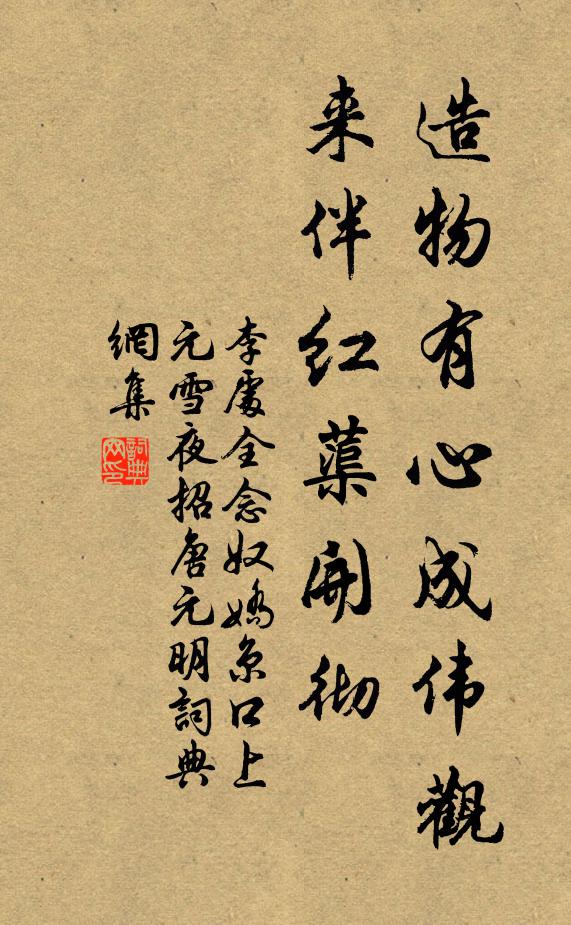 造物有心成伟觀
来伴红蕖開彻
李處全念奴嬌京口上
元雪夜招唐元明詞典
網集
詞典
网印